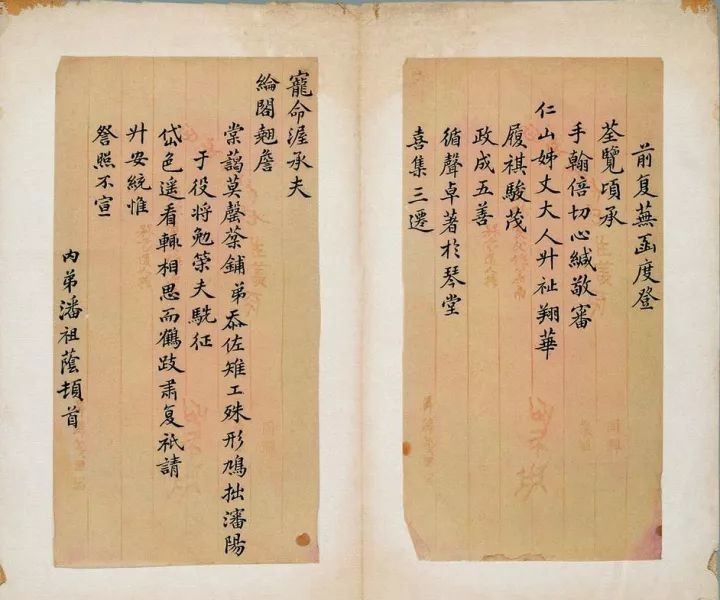 前复蕪函度登
荃覽頃承
手翰倍切心緘敬審
仁山姊丈大人升祉翔華
履祺駿茂
政成五善
循聲卓著於琴堂
喜集三遷
寵命渥承夫
綸閣翹詹
棠蔭莫罄葵鋪弟忝佐雉工殊形鳩拙瀋陽
于役將勉策夫駪征
岱色遥看輙相思而鶴跂肅复祇請
升安統惟
詧照不宣
內弟潘祖蔭頓首